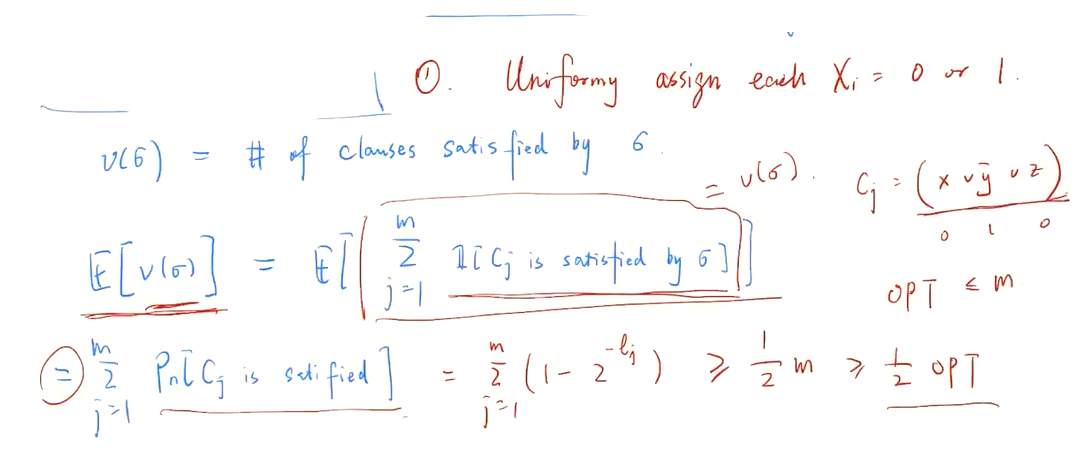 ①. Uniformy assign each Xᵢ = 0 or 1.
v(σ) = # of clauses satisfied by σ.
= v(σ). Cⱼ = (x ∨ ȳ ∨ z)
0 1 0
𝔼[v(σ)] = 𝔼[∑_{j=1}^{m} 𝟙[Cⱼ is satisfied by σ]]
OPT ≤ m
= ∑_{j=1}^{m} Pr[Cⱼ is satified] = ∑_{j=1}^{m} (1 - 2^{-lⱼ}) ≥ 1/2 m ≥ 1/2 OPT